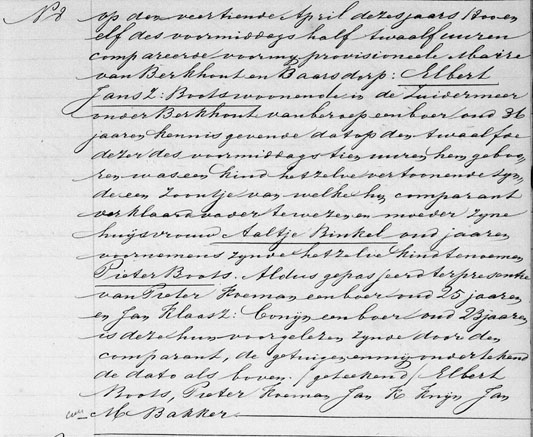 No 8 op den veertiende April dezes jaars 1800 en
elf des voormiddags half twaalf uuren
compareerde voor my provisioneele Maire
van Berkhout en Baarsdorp: Elbert
Jansz: Boots woonende in de Zuidermeer
onder Berkhout van beroep een boer oud 36
jaaren kennis gevende dat op den twaalfde
dezer des voormiddags tien uuren hem geboo
ren was een kind hetzelve vertoonende zyn
de een zoontje van welke hy comparant
verklaard vader te wezen en moeder zyne
huysvrouw Aaltje Binkel oud jaaren
voornemens zynde hetzelve kind te noemen
Pieter Boots. Aldus gepasseerd ter presentie
van Pieter Koeman een boer oud 25 jaaren
en Jan Klaasz: Conyn een boer oud 23 jaaren
is deze hun voorgelezen zynde door den
comparant, de getuigen en my ondertekend
de dato als boven. (geteekend) Elbert
Boots, Pieter Koeman Jan K Knyn Jan
M Bakker.